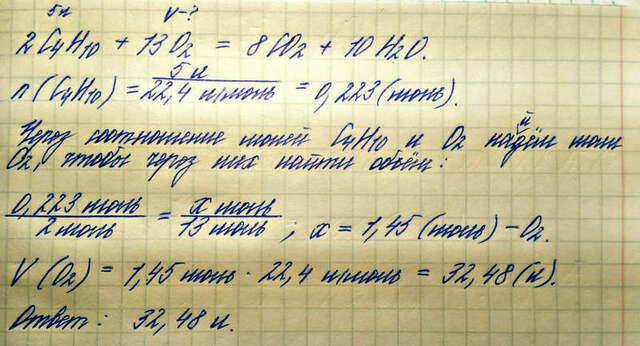 5л V-?
2C₄H₁₀ + 13O₂ = 8CO₂ + 10H₂O.
n(C₄H₁₀) = 5 л / 22,4 л/моль = 0,223 (моль).
Через соотношение молей C₄H₁₀ и O₂ найдём моли
O₂, чтобы через них найти объём:
0,223 моль / 2 моль = x моль / 13 моль ; x = 1,45 (моль) - O₂.
V (O₂) = 1,45 моль · 22,4 л/моль = 32,48 (л).
Ответ: 32,48 л.